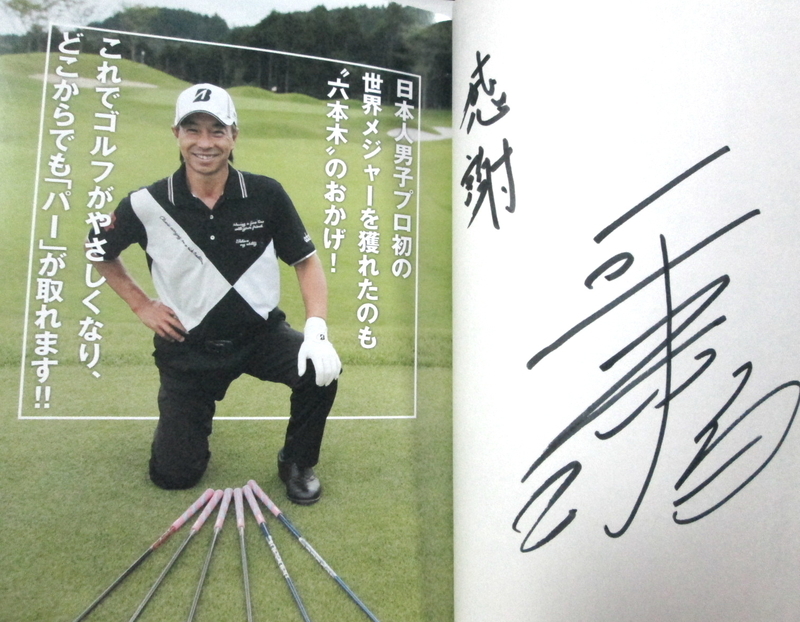 日本人男子プロ初の
世界メジャーを獲れたのも
〝六本木〟のおかげ！
これでゴルフがやさしくなり、
どこからでも「パー」が取れます!!
B
感謝